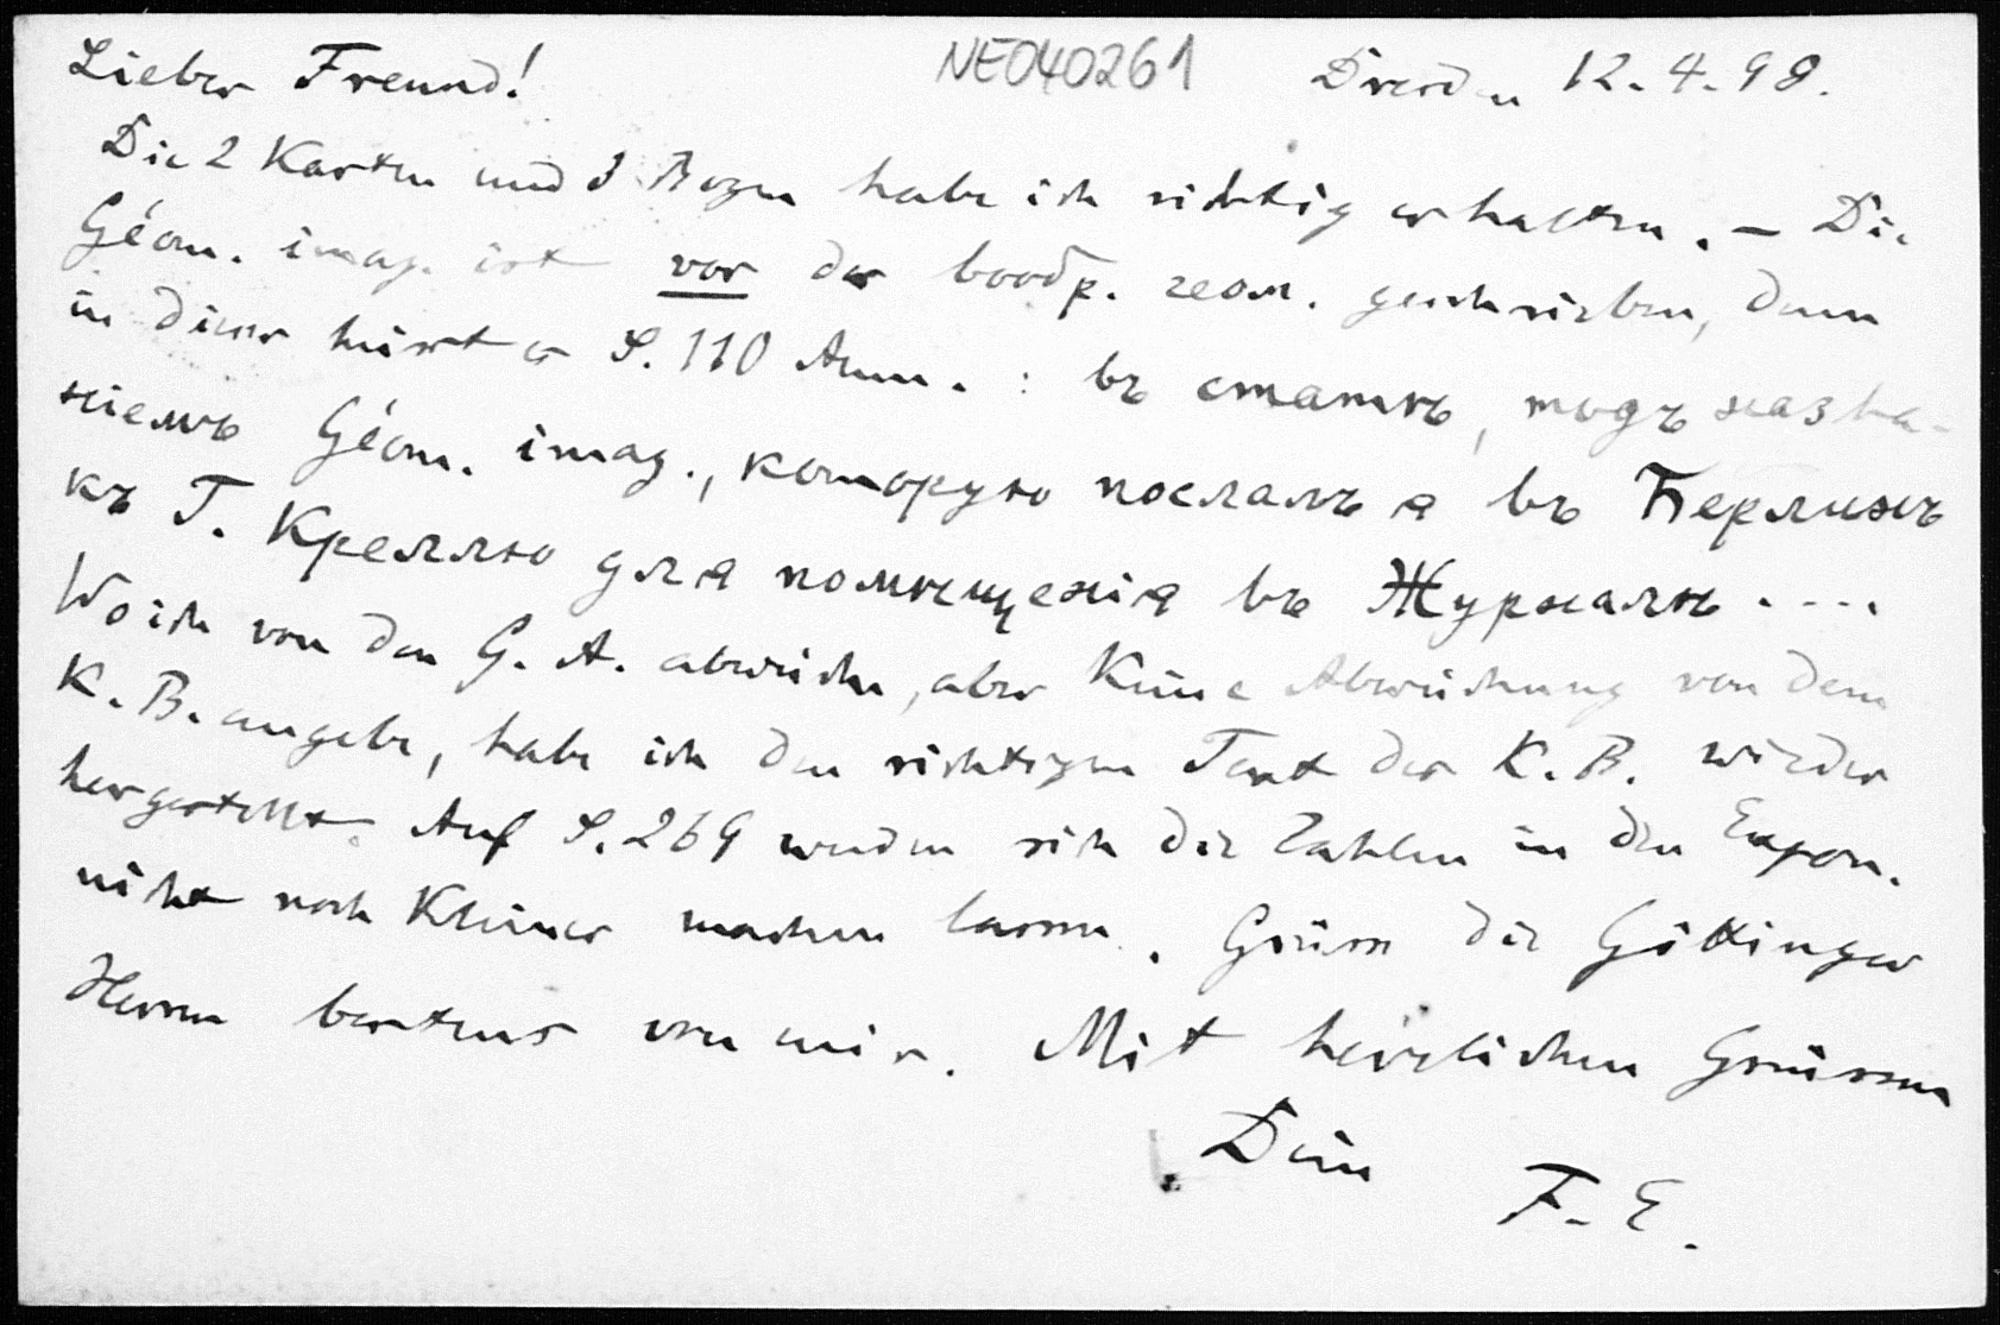 Lieber Freund! NE040261 Dresden 12.4.98.
Die 2 Karten und 3 Bogen habe ich richtig erhalten. – Die
Géom. imag. ist vor der вообр. геом. geschrieben, denn
in dieser heisst es S. 110 Anm. : въ статьѣ, подъ назва-
ніемъ Géom. imag., которую послалъ я въ Берлинъ
къ Г. Креллю для помѣщенія въ Журналѣ ....
Wo ich von den G. A. abweiche, aber keine Abweichung von dem
K. B. angebe, habe ich den richtigen Text des K. B. wieder
hergestellt. Auf S. 269 werden sich die Zahlen in den Expon.
nicht noch kleiner machen lassen. Grüsse die Göttinger
Herren bestens von mir. Mit herzlichen Grüssen
Dein
F. E.